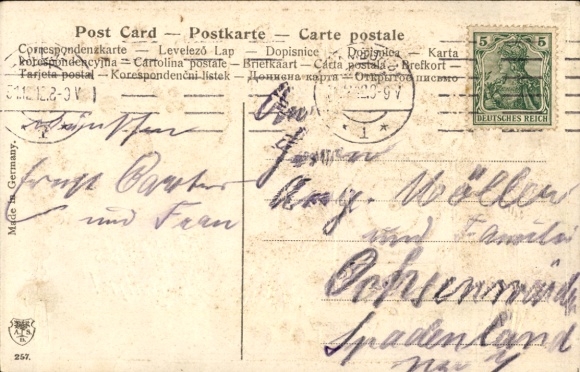 Post Card — Postkarte — Carte postale
Correspondenzkarte — Levelező Lap — Dopisnice — Dopisnica — Karta
korespondencyjna — Cartolina postale — Briefkaart — Carta postala — Brefkort —
Tarjeta postal — Korespondenční listek — Дописна карта — Открытое письмо
5 5
DEUTSCHES REICH
1
Made in Germany.
wünschen
Ernst
und Frau
Herrn
Aug. Möller
und Familie
Ochsenwärder
Spadenland
A. S.
B.
257.